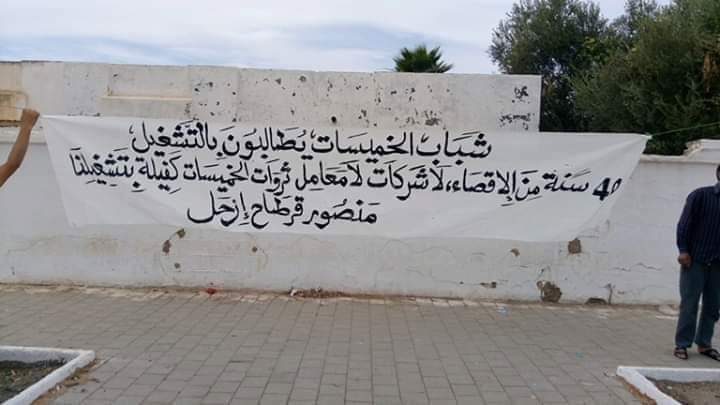 شباب الخميسات يطالبون بالتشغيل
40 سنة من الإقصاء، لا شركات لا معامل ثروات الخميسات كفيلة بتشغيلنا
منصور قرطاح إرحل